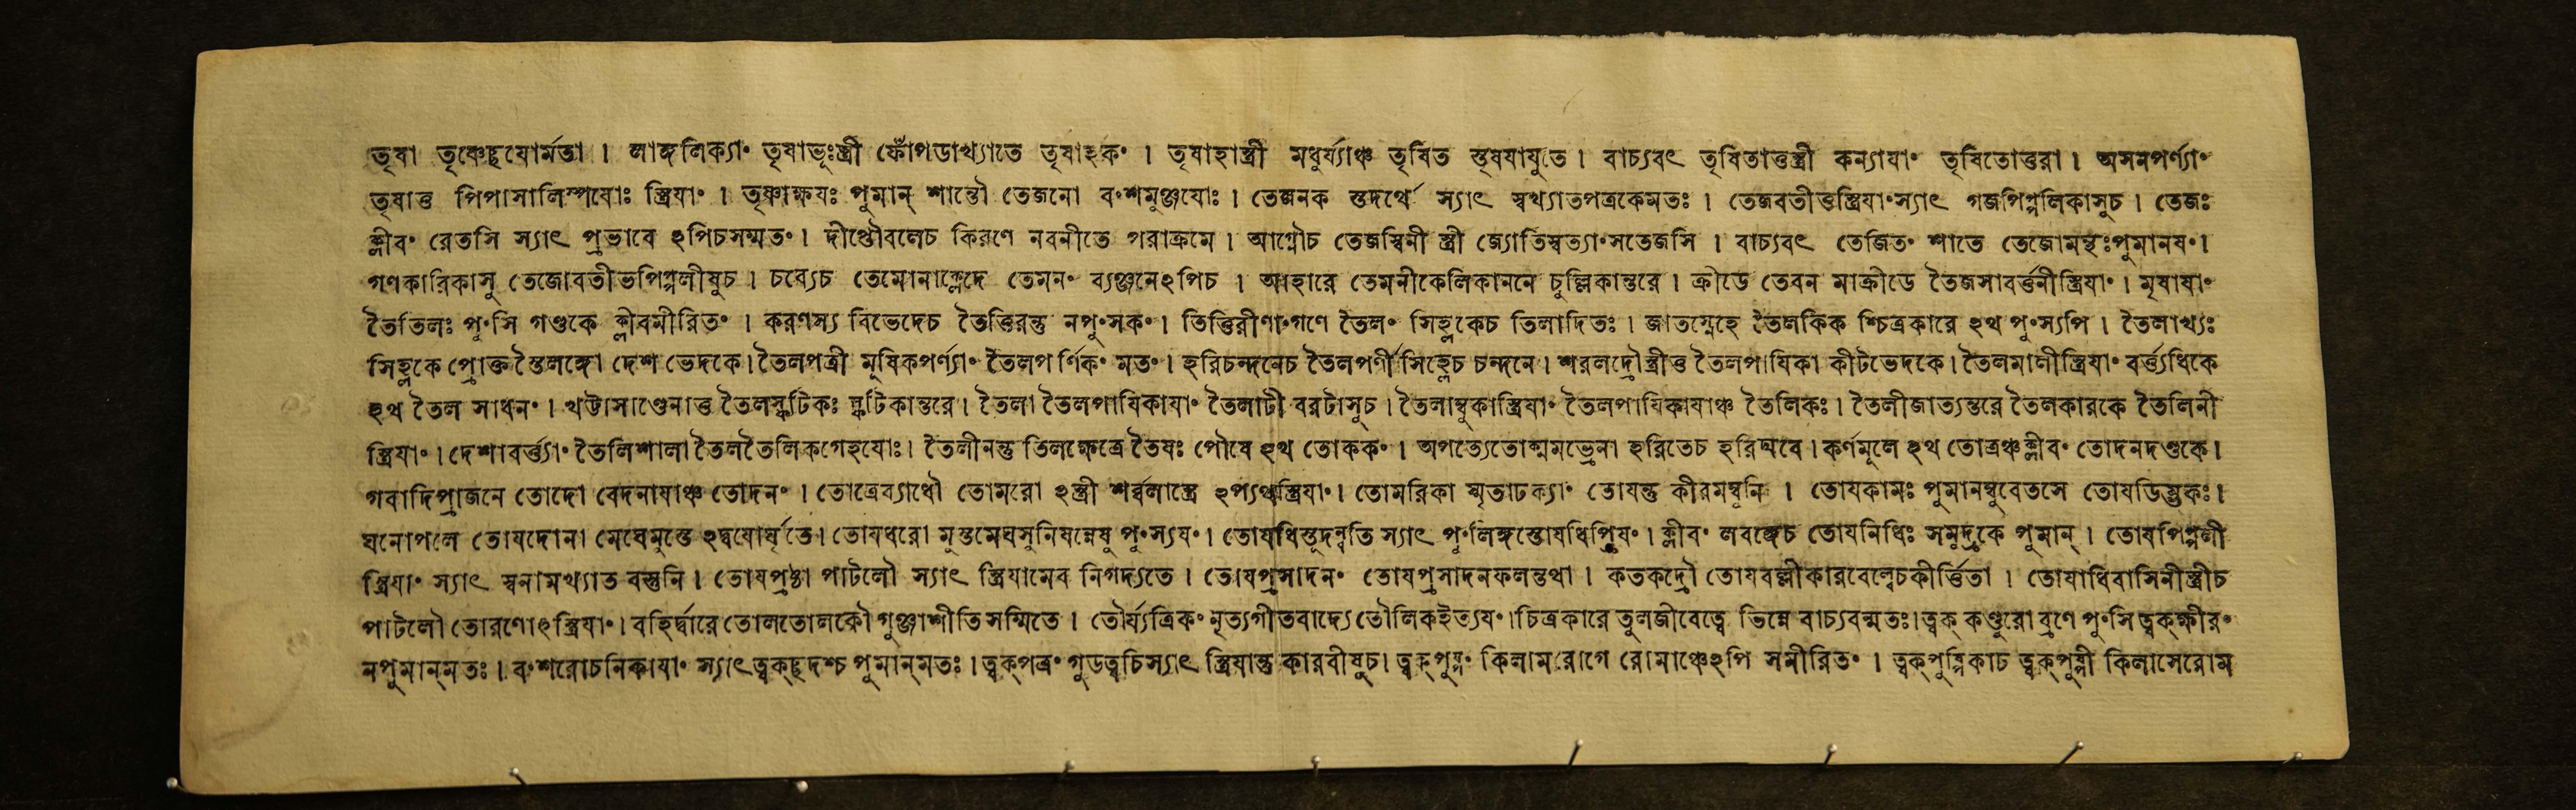 তৃষা তৃষ্ণেচ্ছযোর্মতা । লাঙ্গলিক্যাং তৃষাভূঃস্ত্রী ফোঁপডাখ্যাতে তৃষাহকং । তৃষাহাস্ত্রী মধুর্য্যাঞ্চ তৃষিত স্তৃষযাযুতে । বাচ্যবৎ তৃষিতাত্তস্ত্রী কন্যাযাং তৃষিতোত্তরা । অসনপর্ণ্যাং
তৃষাত্ত পিপাসালিপ্সযোঃ স্ত্রিযাং । তৃষ্ণাক্ষযঃ পুমান্ শান্তৌ তেজনো বংশমুঞ্জযোঃ । তেজনক স্তদর্থে স্যাৎ স্বখ্যাতপত্রকেমতঃ । তেজবতীত্তস্ত্রিযাংস্যাৎ গজপিপ্পলিকাসুচ । তেজঃ
ক্লীবং রেতসি স্যাৎ প্রভাবে ঽপিচসম্মতং । দীপ্তৌবলেচ কিরণে নবনীতে পরাক্রমে । আগ্নৌচ তেজস্বিনী স্ত্রী জ্যোতিষ্মত্যাংসতেজসি । বাচ্যবৎ তেজিতং শাতে তেজোমন্থঃপুমানষং ।
গণকারিকাসু তেজোবতীভপিপ্পলীষুচ । চব্যেচ তেমোনাক্লেদে তেমনং ব্যঞ্জনেঽপিচ । আহারে তেমনীকেলিকাননে চুল্লিকান্তরে । ক্রীডে তেবন মাক্রীডে তৈজসাবর্ত্তনীস্ত্রিযাং । মৃষাযাং
তৈতিলঃ পুংসি গণ্ডকে ক্লীবমীরিতং । করণস্য বিভেদেচ তৈত্তিরন্তু নপুংসকং । তিত্তিরীণাংগণে তৈলং সিহ্লকেচ তিলাদিতঃ । জাতস্নেহে তৈলকিক শ্চিত্রকারে ঽথ পুংস্যপি । তৈলাখ্যঃ
সিহ্লকে প্রোক্ত স্তৈলঙ্গো দেশ ভেদকে । তৈলপত্রী মূষিকপর্ণ্যাং তৈলপর্ণিকং মতং । হরিচন্দনেচ তৈলপর্ণী সিহ্লেচ চন্দনে । শরলদ্রৌস্ত্রীত্ত তৈলপাযিকা কীটভেদকে । তৈলমালীস্ত্রিযাং বর্ত্ত্যধিকে
ঽথ তৈল সাধনং । খট্টাসাণ্ডেনাত্ত তৈলস্ফটিকঃ স্ফটিকান্তরে । তৈলা তৈলপাযিকাযাং তৈলাটী বরটাসুচ । তৈলাম্বুকাস্ত্রিযাং তৈলপাযিকাযাঞ্চ তৈলিকঃ । তৈলীজাত্যন্তরে তৈলকারকে তৈলিনী
স্ত্রিযাং । দেশাবর্ত্ত্যাং তৈলিশালা তৈলতৈলিকগেহযোঃ । তৈলীনন্তু তিলক্ষেত্রে তৈষঃ পৌষে ঽথ তোককং । অপত্যেতোক্মমভ্রেনা হরিতেচ হরিদ্যবে । কর্ণমূলে ঽথ তোত্রঞ্চক্লীবং তোদনদণ্ডকে ।
গবাদিপ্রাজনে তোদো বেদনাযাঞ্চ তোদনং । তোত্রেব্যাধৌ তোমরো ঽস্ত্রী শর্ব্বলাস্ত্রে ঽপ্যথস্ত্রিযাং । তোমরিকা স্মৃতাঢক্যাং তোযন্তু কীরমম্বুনি । তোযকামঃ পুমানম্বুবেতসে তোযডিম্ভকঃ ।
ঘনোপলে তোযদোনা মেঘেমুস্তে ঽদ্বযোর্ঘৃতে । তোযধরো মুস্তমেঘসুনিষন্নেষু পুংস্যযং । তোযধিস্তূদন্বতি স্যাৎ পুংলিঙ্গস্তোযধিপ্রিযং । ক্লীবং লবঙ্গেচ তোযনিধিঃ সমুদ্রকে পুমান্ । তোযপিপ্পলী
স্ত্রিযাং স্যাৎ স্বনামখ্যাত বস্তুনি । তোযপ্রষ্ঠা পাটলৌ স্যাৎ স্ত্রিযামেব নিগদ্যতে । তোযপ্রসাদনং তোযপ্রসাদনফলন্তথা । কতকদ্রৌ তোযবল্লীকারবেল্লেচকীর্ত্তিতা । তোযাধিবাসিনীস্ত্রীচ
পাটলৌ তোরণোঽস্ত্রিযাং । বহির্দ্বারে তোলতোলকৌ গুঞ্জাশীতিসম্মিতে । তৌর্য্যত্রিকং নৃত্যগীতবাদ্যে তৌলিকইত্যযং । চিত্রকারে তুলজীবেত্বে ভিন্নে বাচ্যবন্মতঃ । ত্বক্ কণ্ডুরো ব্রণে পুংসি ত্বক্ক্ষীরং
নপুমান্মতঃ । বংশরোচনিকাযাং স্যাৎত্বক্ছদশ্চ পুমান্মতঃ । ত্বক্পত্রং গুডত্বচিস্যাৎ স্ত্রিযান্তু কারবীষুচ । ত্বক্পুষ্পং কিলামরোগে রোমাঞ্চেঽপি সমীরিতং । ত্বক্পুষ্পিকাচ ত্বক্পুষ্পী কিলাসেরোম